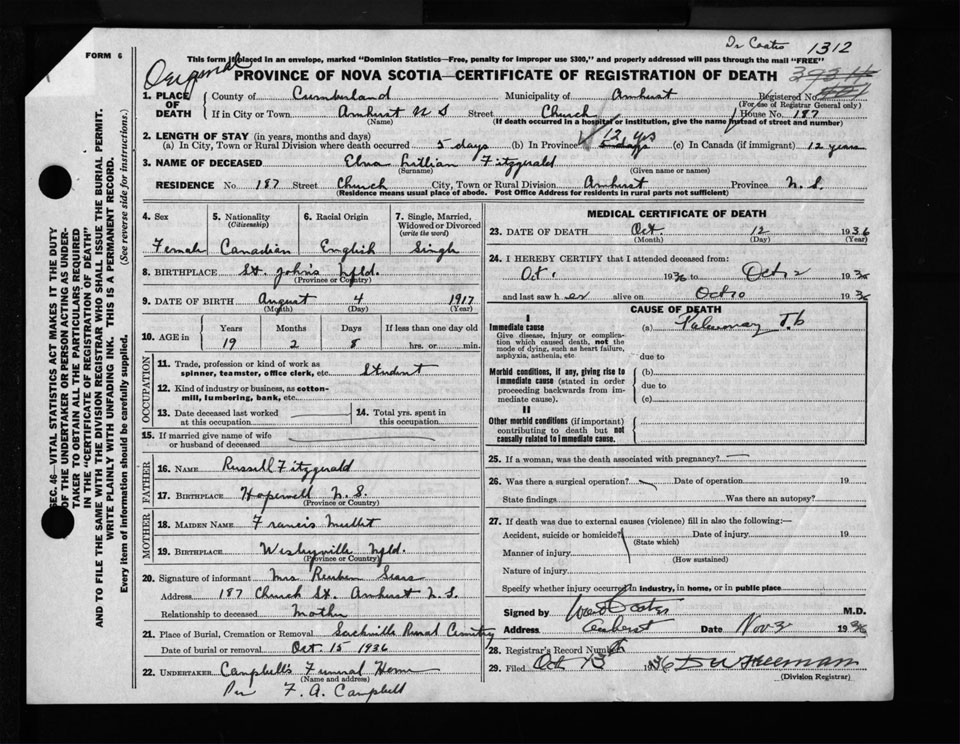 Dr Coates 1312
FORM 6
This form if placed in an envelope, marked "Dominion Statistics—Free, penalty for improper use $300," and properly addressed will pass through the mail "FREE"
Original
PROVINCE OF NOVA SCOTIA—CERTIFICATE OF REGISTRATION OF DEATH
1. PLACE OF DEATH County of Cumberland Municipality of Amherst Registered No.
(For use of Registrar General only)
If in City or Town Amherst N S Street Church House No. 187
(Name) (If death occurred in a hospital or institution, give the name instead of street and number)
2. LENGTH OF STAY (in years, months and days) 12 yrs
(a) In City, Town or Rural Division where death occurred 5 days (b) In Province 5 days (c) In Canada (if immigrant) 12 years
3. NAME OF DECEASED Elma Lillian Fitzgerald
(Surname) (Given name or names)
RESIDENCE No. 187 Street Church City, Town or Rural Division Amherst Province N.S.
(Residence means usual place of abode. Post Office Address for residents in rural parts not sufficient)
4. Sex Female
5. Nationality (Citizenship) Canadian
6. Racial Origin English
7. Single, Married, Widowed or Divorced (write the word) Single
8. BIRTHPLACE St. John's Nfld.
(Province or Country)
9. DATE OF BIRTH August 4 1917
(Month) (Day) (Year)
10. AGE in Years Months Days If less than one day old
19 2 8 hrs. or min.
OCCUPATION
11. Trade, profession or kind of work as spinner, teamster, office clerk, etc. Student
12. Kind of industry or business, as cotton-mill, lumbering, bank, etc.
13. Date deceased last worked at this occupation
14. Total yrs. spent in this occupation
15. If married give name of wife or husband of deceased
FATHER
16. NAME Russell Fitzgerald
17. BIRTHPLACE Hopewell N.S.
(Province or Country)
MOTHER
18. MAIDEN NAME Francis
19. BIRTHPLACE Wesleyville Nfld.
(Province or Country)
20. Signature of informant Mrs Reuben Sears
Address 187 Church St. Amherst N.S.
Relationship to deceased Mother
21. Place of Burial, Cremation or Removal Sackville Rural Cemetry
Date of burial or removal Oct. 15 1936
22. UNDERTAKER Campbell's Funeral Home
(Name and address)
Per F. A. Campbell
MEDICAL CERTIFICATE OF DEATH
23. DATE OF DEATH Oct. 12 1936
(Month) (Day) (Year)
24. I HEREBY CERTIFY that I attended deceased from:
Oct 1 1936 to Oct 12 1936
and last saw her alive on Oct 10 1936
CAUSE OF DEATH
I
Immediate cause (a) Pulmonary Tb
Give disease, injury or complication which caused death, not the mode of dying, such as heart failure, asphyxia, asthenia, etc
due to
Morbid conditions, if any, giving rise to immediate cause (stated in order proceeding backwards from immediate cause).
(b)
due to
(c)
II
Other morbid conditions (if important) contributing to death but not causally related to immediate cause.
25. If a woman, was the death associated with pregnancy?
26. Was there a surgical operation? Date of operation 19
State findings Was there an autopsy?
27. If death was due to external causes (violence) fill in also the following:—
Accident, suicide or homicide? Date of injury 19
(State which)
Manner of injury
(How sustained)
Nature of injury
Specify whether injury occurred in industry, in home, or in public place
Signed by Coates M.D.
Address Amherst Date Nov 3 1936
28. Registrar's Record Number
29. Filed Oct 13 1936 D W Freeman
(Division Registrar)
SEC. 46—VITAL STATISTICS ACT MAKES IT THE DUTY
OF THE UNDERTAKER OR PERSON ACTING AS UNDER-
TAKER TO OBTAIN ALL THE PARTICULARS REQUIRED
IN THE "CERTIFICATE OF REGISTRATION OF DEATH"
AND TO FILE THE SAME WITH THE DIVISION REGISTRAR WHO SHALL ISSUE THE BURIAL PERMIT.
WRITE PLAINLY WITH UNFADING INK. THIS IS A PERMANENT RECORD.
Every item of information should be carefully supplied. (See reverse side for instructions.)